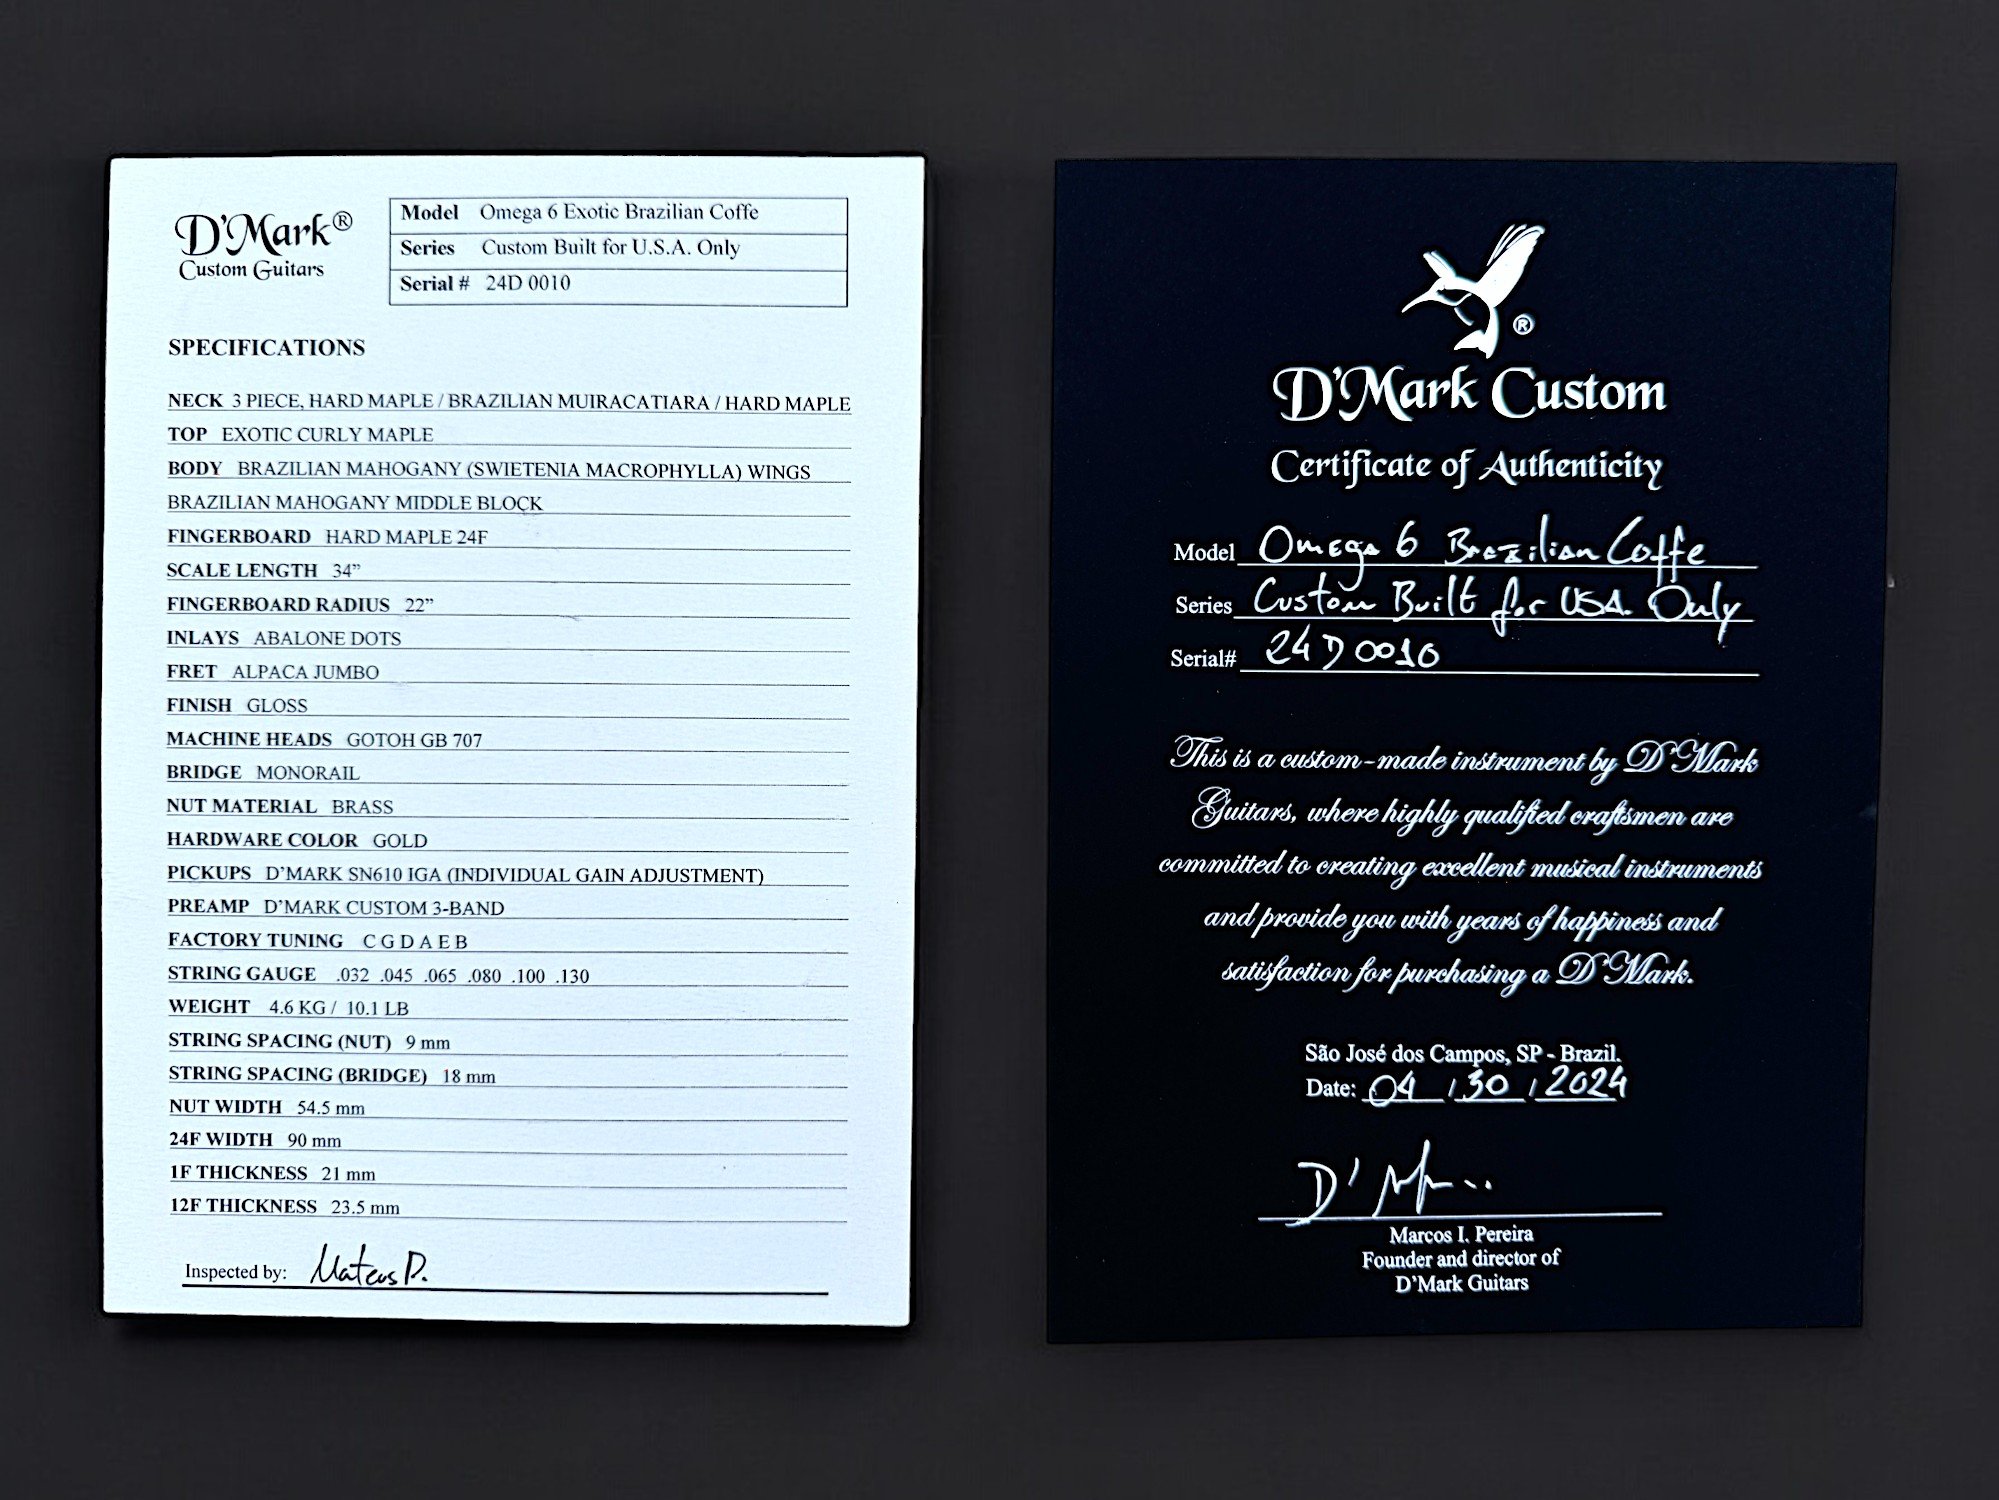 D'Mark®
Custom Guitars
Model Omega 6 Exotic Brazilian Coffe
Series Custom Built for U.S.A. Only
Serial # 24D 0010
SPECIFICATIONS
NECK 3 PIECE, HARD MAPLE / BRAZILIAN MUIRACATIARA / HARD MAPLE
TOP EXOTIC CURLY MAPLE
BODY BRAZILIAN MAHOGANY (SWIETENIA MACROPHYLLA) WINGS
BRAZILIAN MAHOGANY MIDDLE BLOCK
FINGERBOARD HARD MAPLE 24F
SCALE LENGTH 34”
FINGERBOARD RADIUS 22”
INLAYS ABALONE DOTS
FRET ALPACA JUMBO
FINISH GLOSS
MACHINE HEADS GOTOH GB 707
BRIDGE MONORAIL
NUT MATERIAL BRASS
HARDWARE COLOR GOLD
PICKUPS D’MARK SN610 IGA (INDIVIDUAL GAIN ADJUSTMENT)
PREAMP D’MARK CUSTOM 3-BAND
FACTORY TUNING C G D A E B
STRING GAUGE .032 .045 .065 .080 .100 .130
WEIGHT 4.6 KG / 10.1 LB
STRING SPACING (NUT) 9 mm
STRING SPACING (BRIDGE) 18 mm
NUT WIDTH 54.5 mm
24F WIDTH 90 mm
1F THICKNESS 21 mm
12F THICKNESS 23.5 mm
Inspected by: Mateus P.
®
D'Mark Custom
Certificate of Authenticity
Model Omega 6 Brazilian Coffe
Series Custom Built for USA. Only
Serial# 24D 0010
This is a custom-made instrument by D'Mark
Guitars, where highly qualified craftsmen are
committed to creating excellent musical instruments
and provide you with years of happiness and
satisfaction for purchasing a D'Mark.
São José dos Campos, SP - Brazil.
Date: 04 / 30 / 2024
Marcos I. Pereira
Founder and director of
D’Mark Guitars